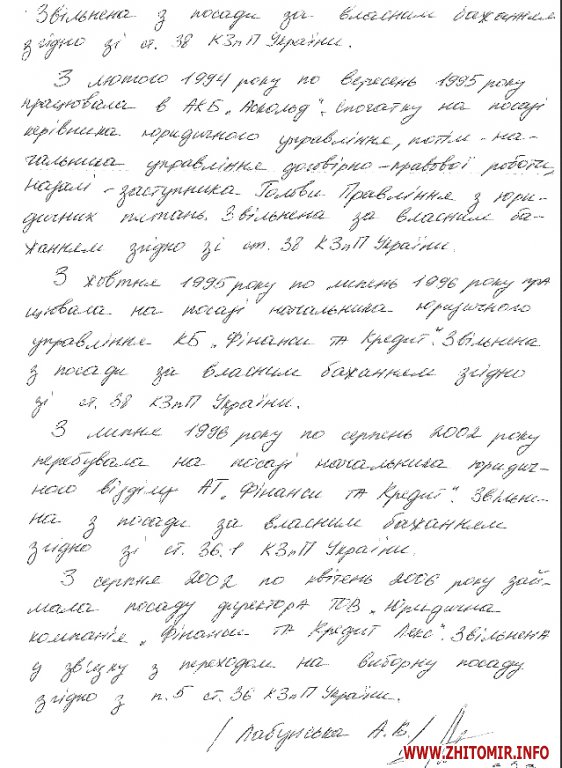 Звільнена з посади за власним бажанням
згідно зі ст. 38 КЗпП України.
З лютого 1994 року по вересень 1995 року
працювала в АКБ „Аскольд". Спочатку на посаді
керівника юридичного управління, потім - на-
чальника управління договірно-правової роботи,
надалі - заступника Голови Правління з юри-
дичник питань. Звільнена за власним ба-
жанням згідно зі ст. 38 КЗпП України.
З жовтня 1995 року по липень 1996 року пра
цювала на посаді начальника юридичного
управління КБ „Фінанси та Кредит". Звільнина
з посади за власним бажанням згідно
зі ст. 38 КЗпП України.
З липня 1996 року по серпень 2002 року
перебувала на посаді начальника юридич-
ного відділу АТ „Фінанси та Кредит". Звільне-
на з посади за власним бажанням
згідно зі ст. 36.1 КЗпП України.
З серпня 2002 по квітень 2006 року зай-
мала посаду директора ТОВ „Юридична
компанія „Фінанси та Кредит Лекс". Звільнена
у звізку з переходом на виборну посаду
згідно з п.5 ст. 36 КЗпП України.
/ Лабунська А.В./
WWW.ZHITOMIR.INFO